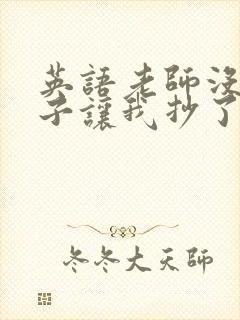 英語老師沒
子讓我抄了
冬冬大天師